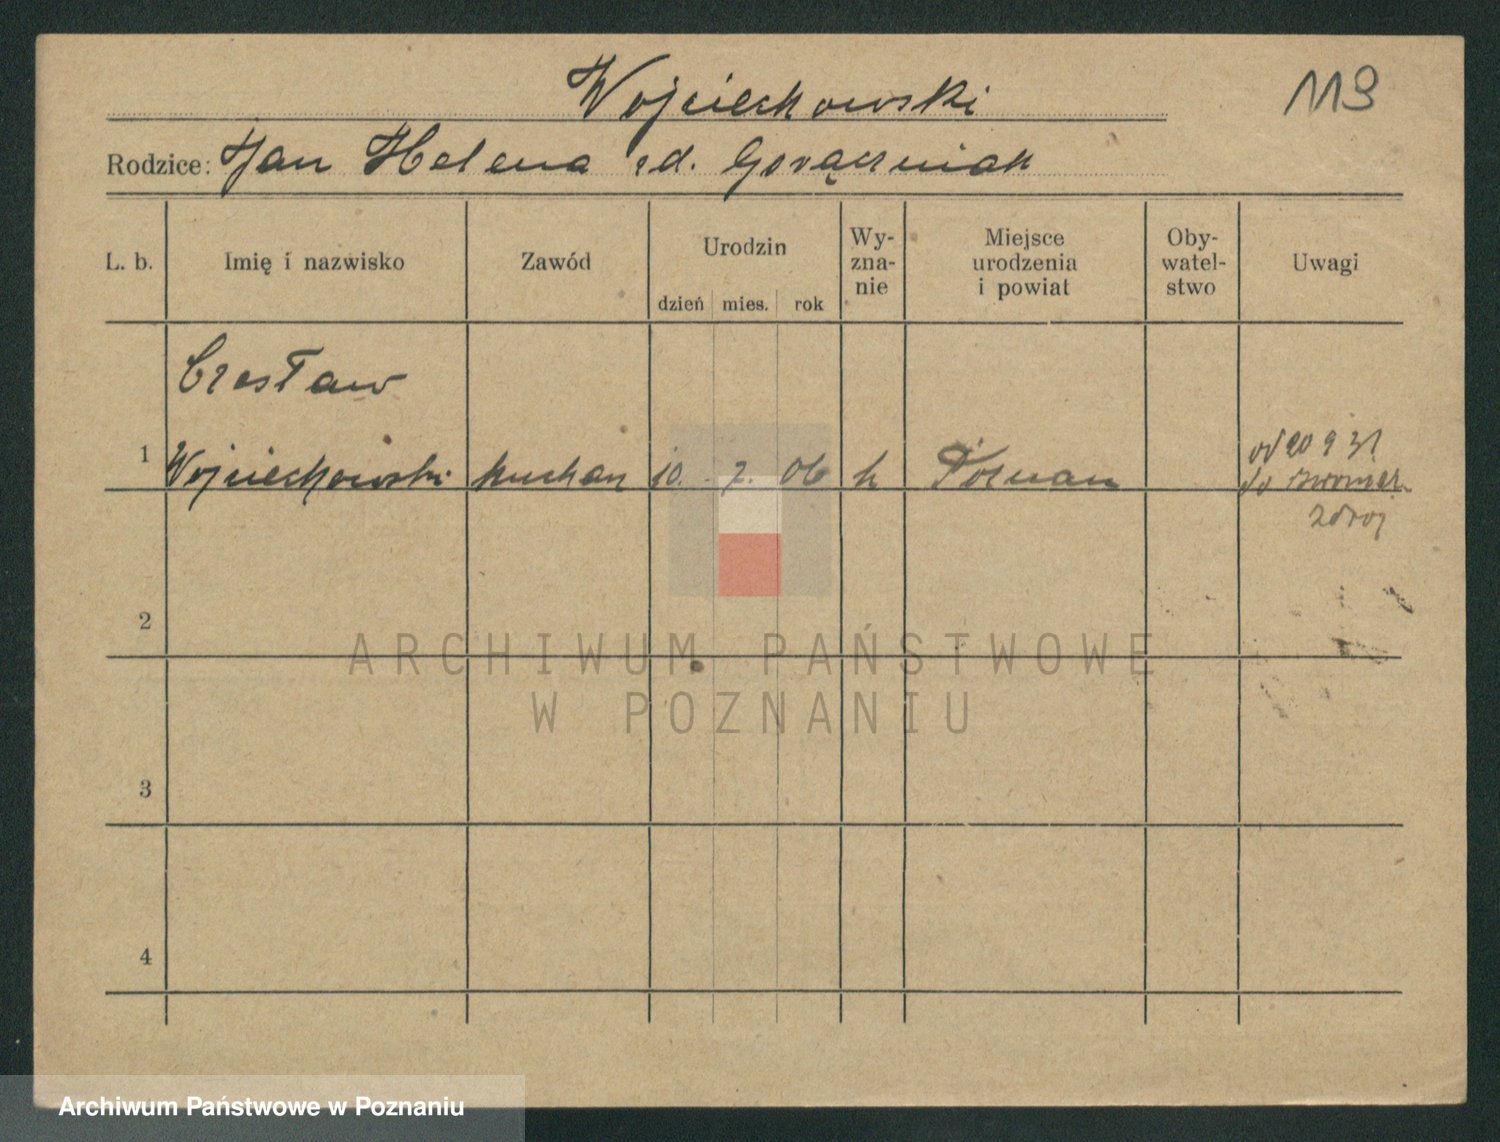 Wojciechowski
119
Rodzice: Jan Helena zd. Gorączniak
L. b. Imię i nazwisko Zawód Urodzin dzień mies. rok Wy-zna-nie Miejsce urodzenia i powiat Oby-watel-stwo Uwagi
Czesław
1 Wojciechowski kuchar 10. 7. 06 k Poznan od 20 9 31
do
zdroj
2
ARCHIWUM PAŃSTWOWE
W POZNANIU
3
4
Archiwum Państwowe w Poznaniu